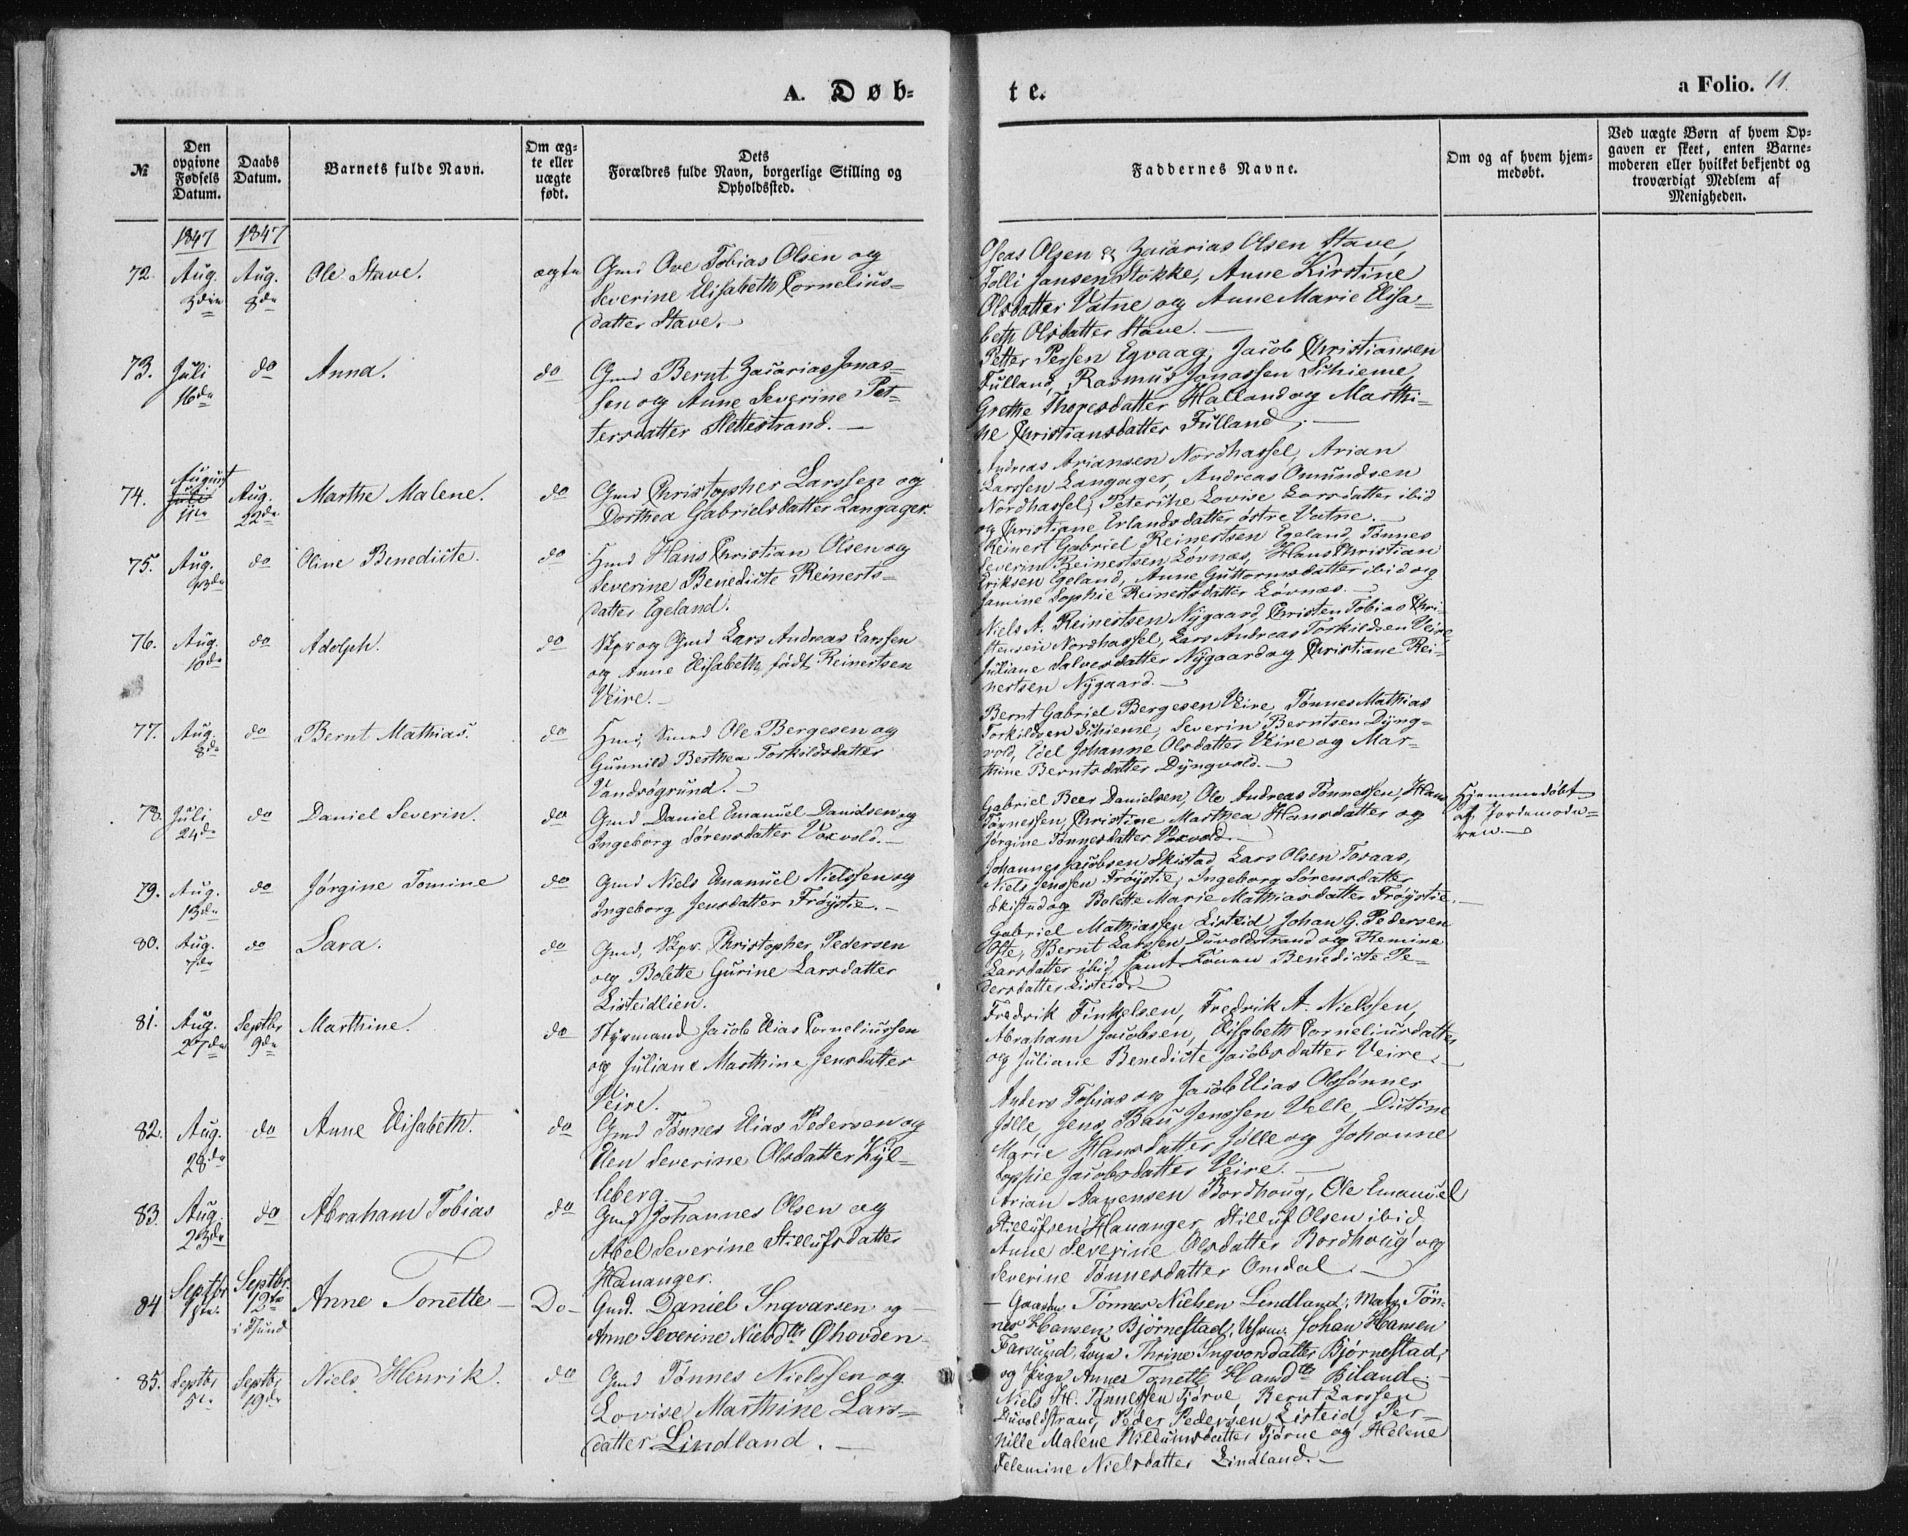 A. Døb-
te.
a Folio. 11.
№
Den opgivne Fødsels Datum.
Daabs Datum.
Barnets fulde Navn.
Om ægte eller uægte født.
Dets Forældres fulde Navn, borgerlige Stilling og Opholdssted.
Faddernes Navne.
Om og af hvem hjemmedøbt.
Ved uægte Børn af hvem Opgaven er skeet, enten Barnemoderen eller hvilket bekjendt og troværdigt Medlem af Menigheden.
1847 1847
72. Aug. Aug. 8de Ole Stave. ægte
Gmd Ove Tobias Olsen og
Severine Elisabeth Cornelius-
datter Stave.
Oseas Olsen & Zacarias Olsen Stave,
Tolli Jansen Stokke, Anne Kirstine
Olsdatter Vatne og Anne Marie Elisa-
beth Olsdatter Stave.
73. Juli 16de do Anna. do
Gmd Bernt Zacarias Jonas-
sen og Anne Severine Pet-
tersdatter Slettestrand.
Petter Persen Egvaag, Jacob Christiansen
Fulland, Rasmus Jonassen Schieme,
Grethe Thoresdatter Halland og Marthi-
ne Christiansdatter Fulland.
74. August Juli 11te Aug. 22de Marthe Malene. do
Gmd Christopher Larssen og
Dorthea Gabrielsdatter Langager.
Andreas Ariansen Nordhassel, Arian
Larssen Langager, Andreas Omundsen
Nordhassel, Peterine Lovise Larsdatter ibid
og Christiane Erlandsdatter østre Vatne.
75. Aug. do Oline Benedicte. do
Hmd Hans Christian Olsen og
Severine Benedicte Reinerts-
datter Egeland.
Reinert Gabriel Reinertsen Egeland, Tønnes
Severin Reinertsen Løvnæs, Hans Christian
Eriksen Egeland, Anne Guttormsdatter ibid og
Jamine Sophie Reinertsdatter Løvnæs.
76. Aug. 10de do Adolph. do
Skpr og Gmd Lars Andreas Larssen
og Anne Elisabeth født Reinertsen
Veire.
Niels A. Reinertsen Nygaard, Christen Tobias Chri-
stensen Nordhassel, Lars Andreas Torkildsen Veire,
Juliane Salvesdatter Nygaard og Christiane Rei-
nertsen Nygaard.
77. Aug. 8de do Bernt Mathias. do
Hmd, Smed Ole Bergesen og
Gunnild Berthea Torkildsdatter
Vandsøgrund.
Bernt Gabriel Bergesen Veire, Tønnes Mathias
Torkildsen Schieme, Severin Berntsen Dyng-
vold, Edel Johanne Olsdatter Veire og Mar-
thine Berntsdatter Dyngvold.
78. Juli 24de do Daniel Severin. do
Gmd Daniel Emanuel Danielsen og
Ingeborg Sørensdatter Voxvold.
Gabriel Beer Danielsen, Ole Andreas Tønnessen, Hans
Tønnessen, Christine Marthea Hansdatter og
Jørgine Tønnesdatter Voxvold.
Hjemmedøbt
af Jordemode-
ren.
79. Aug. 13de do Jørgine Tomine do
Gmd Niels Emanuel Nielssen og
Ingeborg Jensdatter Frøystie.
Johannes Jacobsen Skistad, Lars Olsen Tosaas,
Niels Jenssen Frøystie, Ingeborg Sørensdatter
Skistad og Bolette Marie Mathiasdatter Frøystie.
80. Aug. 7de do Sara. do
Gmd, Skpr. Christopher Pedersen
og Bolette Gurine Larsdatter
Listeidlien.
Gabriel Mathiassen Listeid, Johan G. Pedersen
Ofte, Bernt Larssen Duvoldstrand og Remine
Larsdatter ibid samt Benedicte Pe-
dersdatter Listeid.
81. Aug. 27de Septbr 9de Marthine. do
Styrmand Jacob Elias Corneliussen
og Juliane Marthine Jensdatter
Veire.
Fredrik Finkelsen, Fredrik A. Nielssen,
Abraham Jacobsen, Elisabeth Corneliusdatter
og Juliane Benedicte Jacobsdatter Veire.
82. Aug. 28de do Anne Elisabeth. do
Gmd Tønnes Elias Pedersen og
Elen Severine Olsdatter Kyl-
leberg.
Anders Tobias og Jacob Elias Olssønner
Jølle, Jens Bau Jenssen Velle,
Marie Hansdatter Jølle og Johanne
Sophie Jacobsdatter Veire.
83. Aug. 23de do Abraham Tobias do
Gmd Johannes Olsen og
Abel Severine Stillufsdatter
Hauanger.
Arian Aanensen Bordhoug, Ole Emanuel
Stillufsen Hauanger, Stilluf Olsen ibid
Anne Severine Olsdatter Bordhoug og
Severine Tønnesdatter Omdal.
84 Septbr 1ste. Septbr 12te i Sund Anne Tonette Do
Gmd. Daniel Ingvarsen og
Anne Severine Nielsdtr Øhovden
Gaardm. Tønnes Nielsen Lindland, Matr. Tøn-
nes Hansen Bjørnestad, Johan Hansen
Farsund, Thrine Ingvorsdatter Bjørnestad,
og Pigen Anne Tonette Hansdtr Biland.
85. Septbr 5te Septbr 19de Niels Henrik. do
Gmd Tønnes Nielssen og
Lovise Marthine Lars-
datter Lindland.
Niels H. Tønnessen Tjørve, Bernt Larssen
Duvoldstrand, Peder Pedersen Listeid, Per-
nille Malene Willumsdatter Tjørve og Helene
Telemine Nielsdatter Lindland.